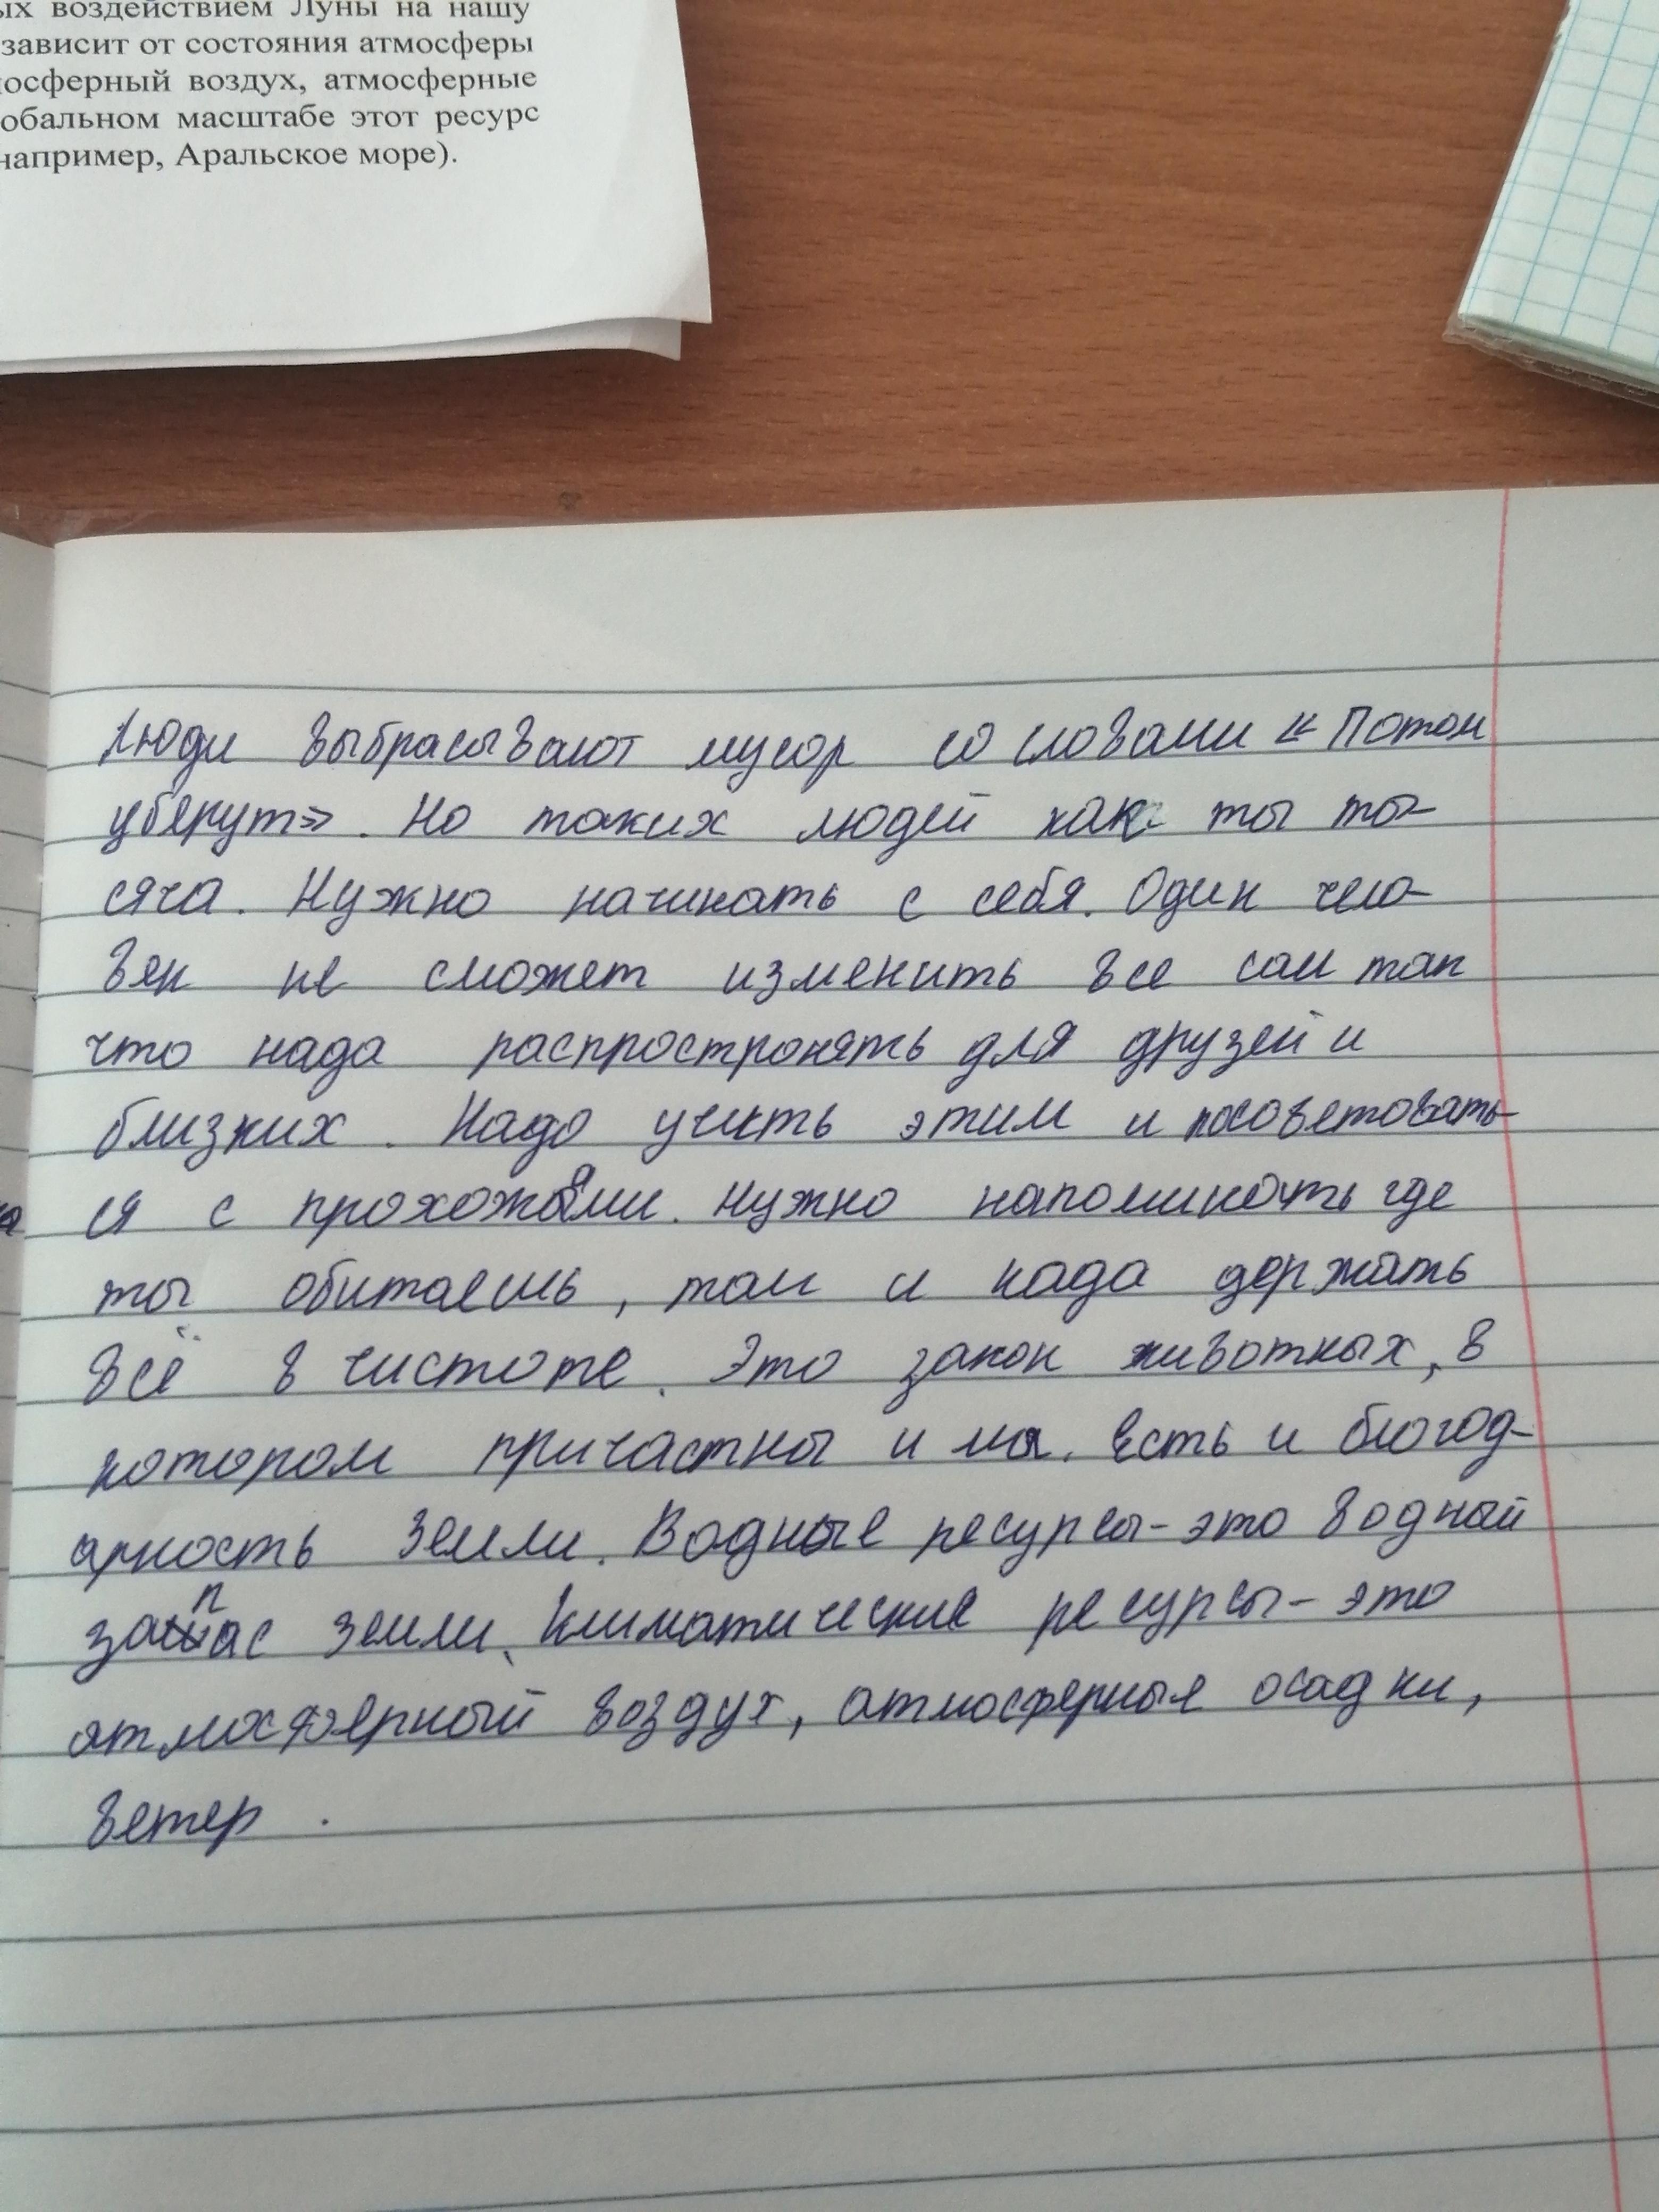 ых воздействием Луны на нашу
зависит от состояния атмосферы
осферный воздух, атмосферные
обальном масштабе этот ресурс
например, Аральское море).
Люди выбрасывают мусор со словами « Потом
уберут». Но таких людей как ты ты-
сяча. Нужно начинать с себя. Один чело-
век не сможет изменить все сам так
что нада распростронять для друзей и
близких. Надо учить этим и посоветовать-
ся с прохожами. Нужно напоминать где
ты обитаешь, там и нада держать
всё в чистоте. Это закон животных, в
котором причастны и мы. Есть и благод-
арность Земли. Водные ресурсы - это водный
запас земли. Климатические ресурсы - это
атмосферный воздух, атмосферные осадки,
ветер.